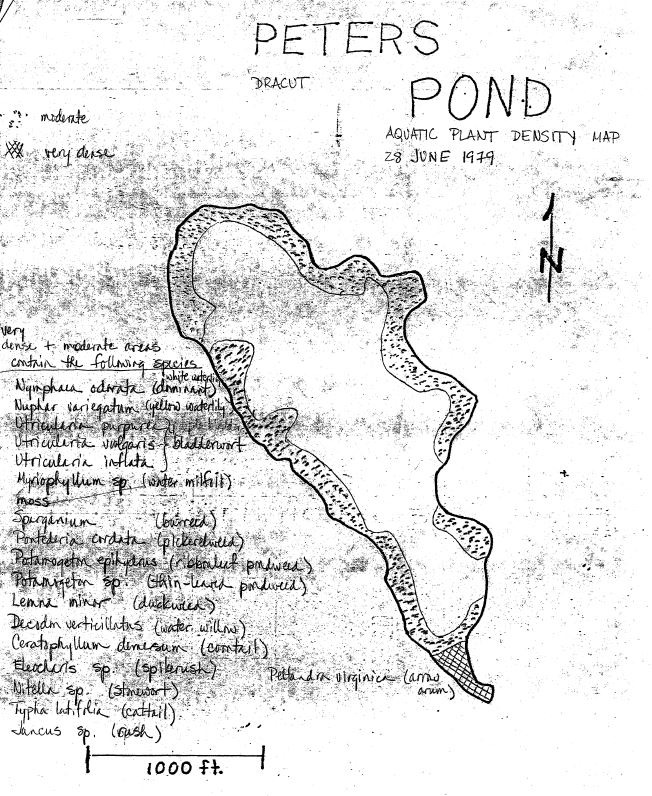 PETERS
POND
DRACUT
AQUATIC PLANT DENSITY MAP
28 JUNE 1979
moderate
very dense
N
very
dense + moderate areas
contain the following species
Nymphaea odorata (dominant) white waterlily
Nuphar variegatum (yellow waterlily)
Utricularia purpurea
Utricularia vulgaris } bladderwort
Utricularia inflata
Myriophyllum sp. (water milfoil)
moss
Sparganium (burreed)
Pontederia cordata (pickerelweed)
Potamogeton epihydrus (ribbonleaf pondweed)
Potamogeton sp. (thin-leaved pondweed)
Lemna minor (duckweed)
Decodon verticillatus (water willow)
Ceratophyllum demersum (coontail)
Eleocharis sp. (spikerush)
Nitella sp. (stonewort)
Typha latifolia (cattail)
Juncus sp. (rush)
Peltandra virginica (arrow
arum)
1000 ft.